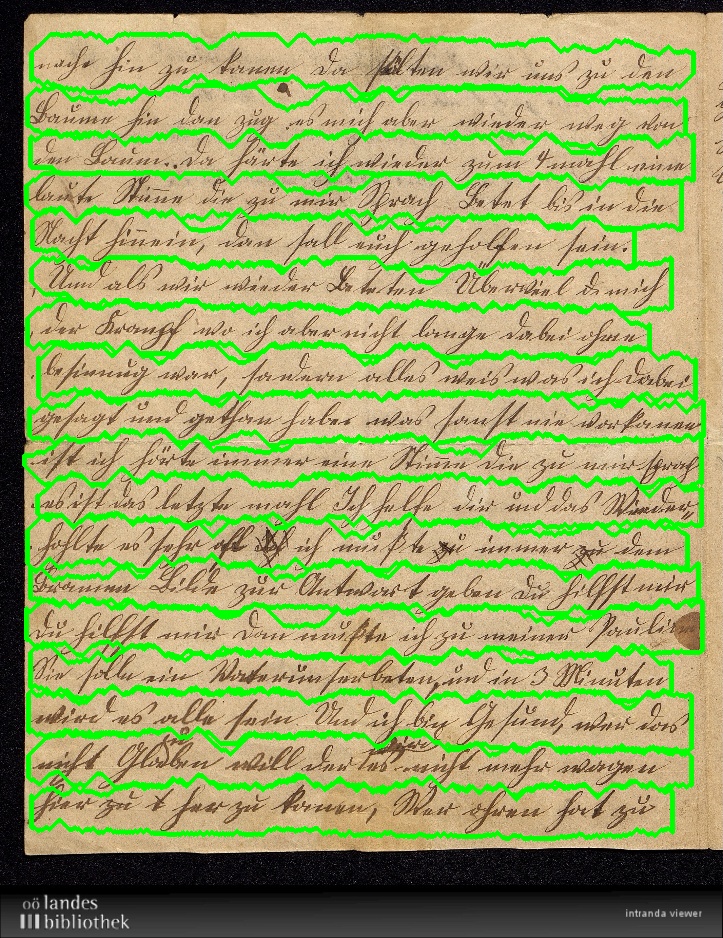 nache hin zu kanen da sollten wir uns zu den
Baume hin dan zug es mich aber wieder weg von
den Baum. Da härte ich wieder zum 4 mahl eine
laute Stime die zu mir Sprach Betet bis in die
Nacht hinein, dan sall euch geholfen sein.
Und als wir wieder Beteten Überviel d. mich
der Krampf wo ich aber nicht lange dabei ohne
besinnug war, sandern alles weis was ich dabei
gesagt und gethan habe was sanst nie vorkanen
ist ich hörte immer eine Stime die zu mir sprach
es ist das letzte mahl Ich helfe dir und das Wieder,
hohlte es sehr oft ich mußte immer zu dem
Bramen Bilde zur Antwort geben Du hilfst mir
Du hilfst mir dan mußte ich zu meiner Paulin
Sie solle ein Vaterunserbeten, und in 3 Minuten
wird es alle sein Und ich bin Gesund, wer das
nicht Glauben will der wird es nicht mehr wagen
hier zu t her zu kanen, Wer ohren hat zu
oö landes
bibliothek
intranda viewer